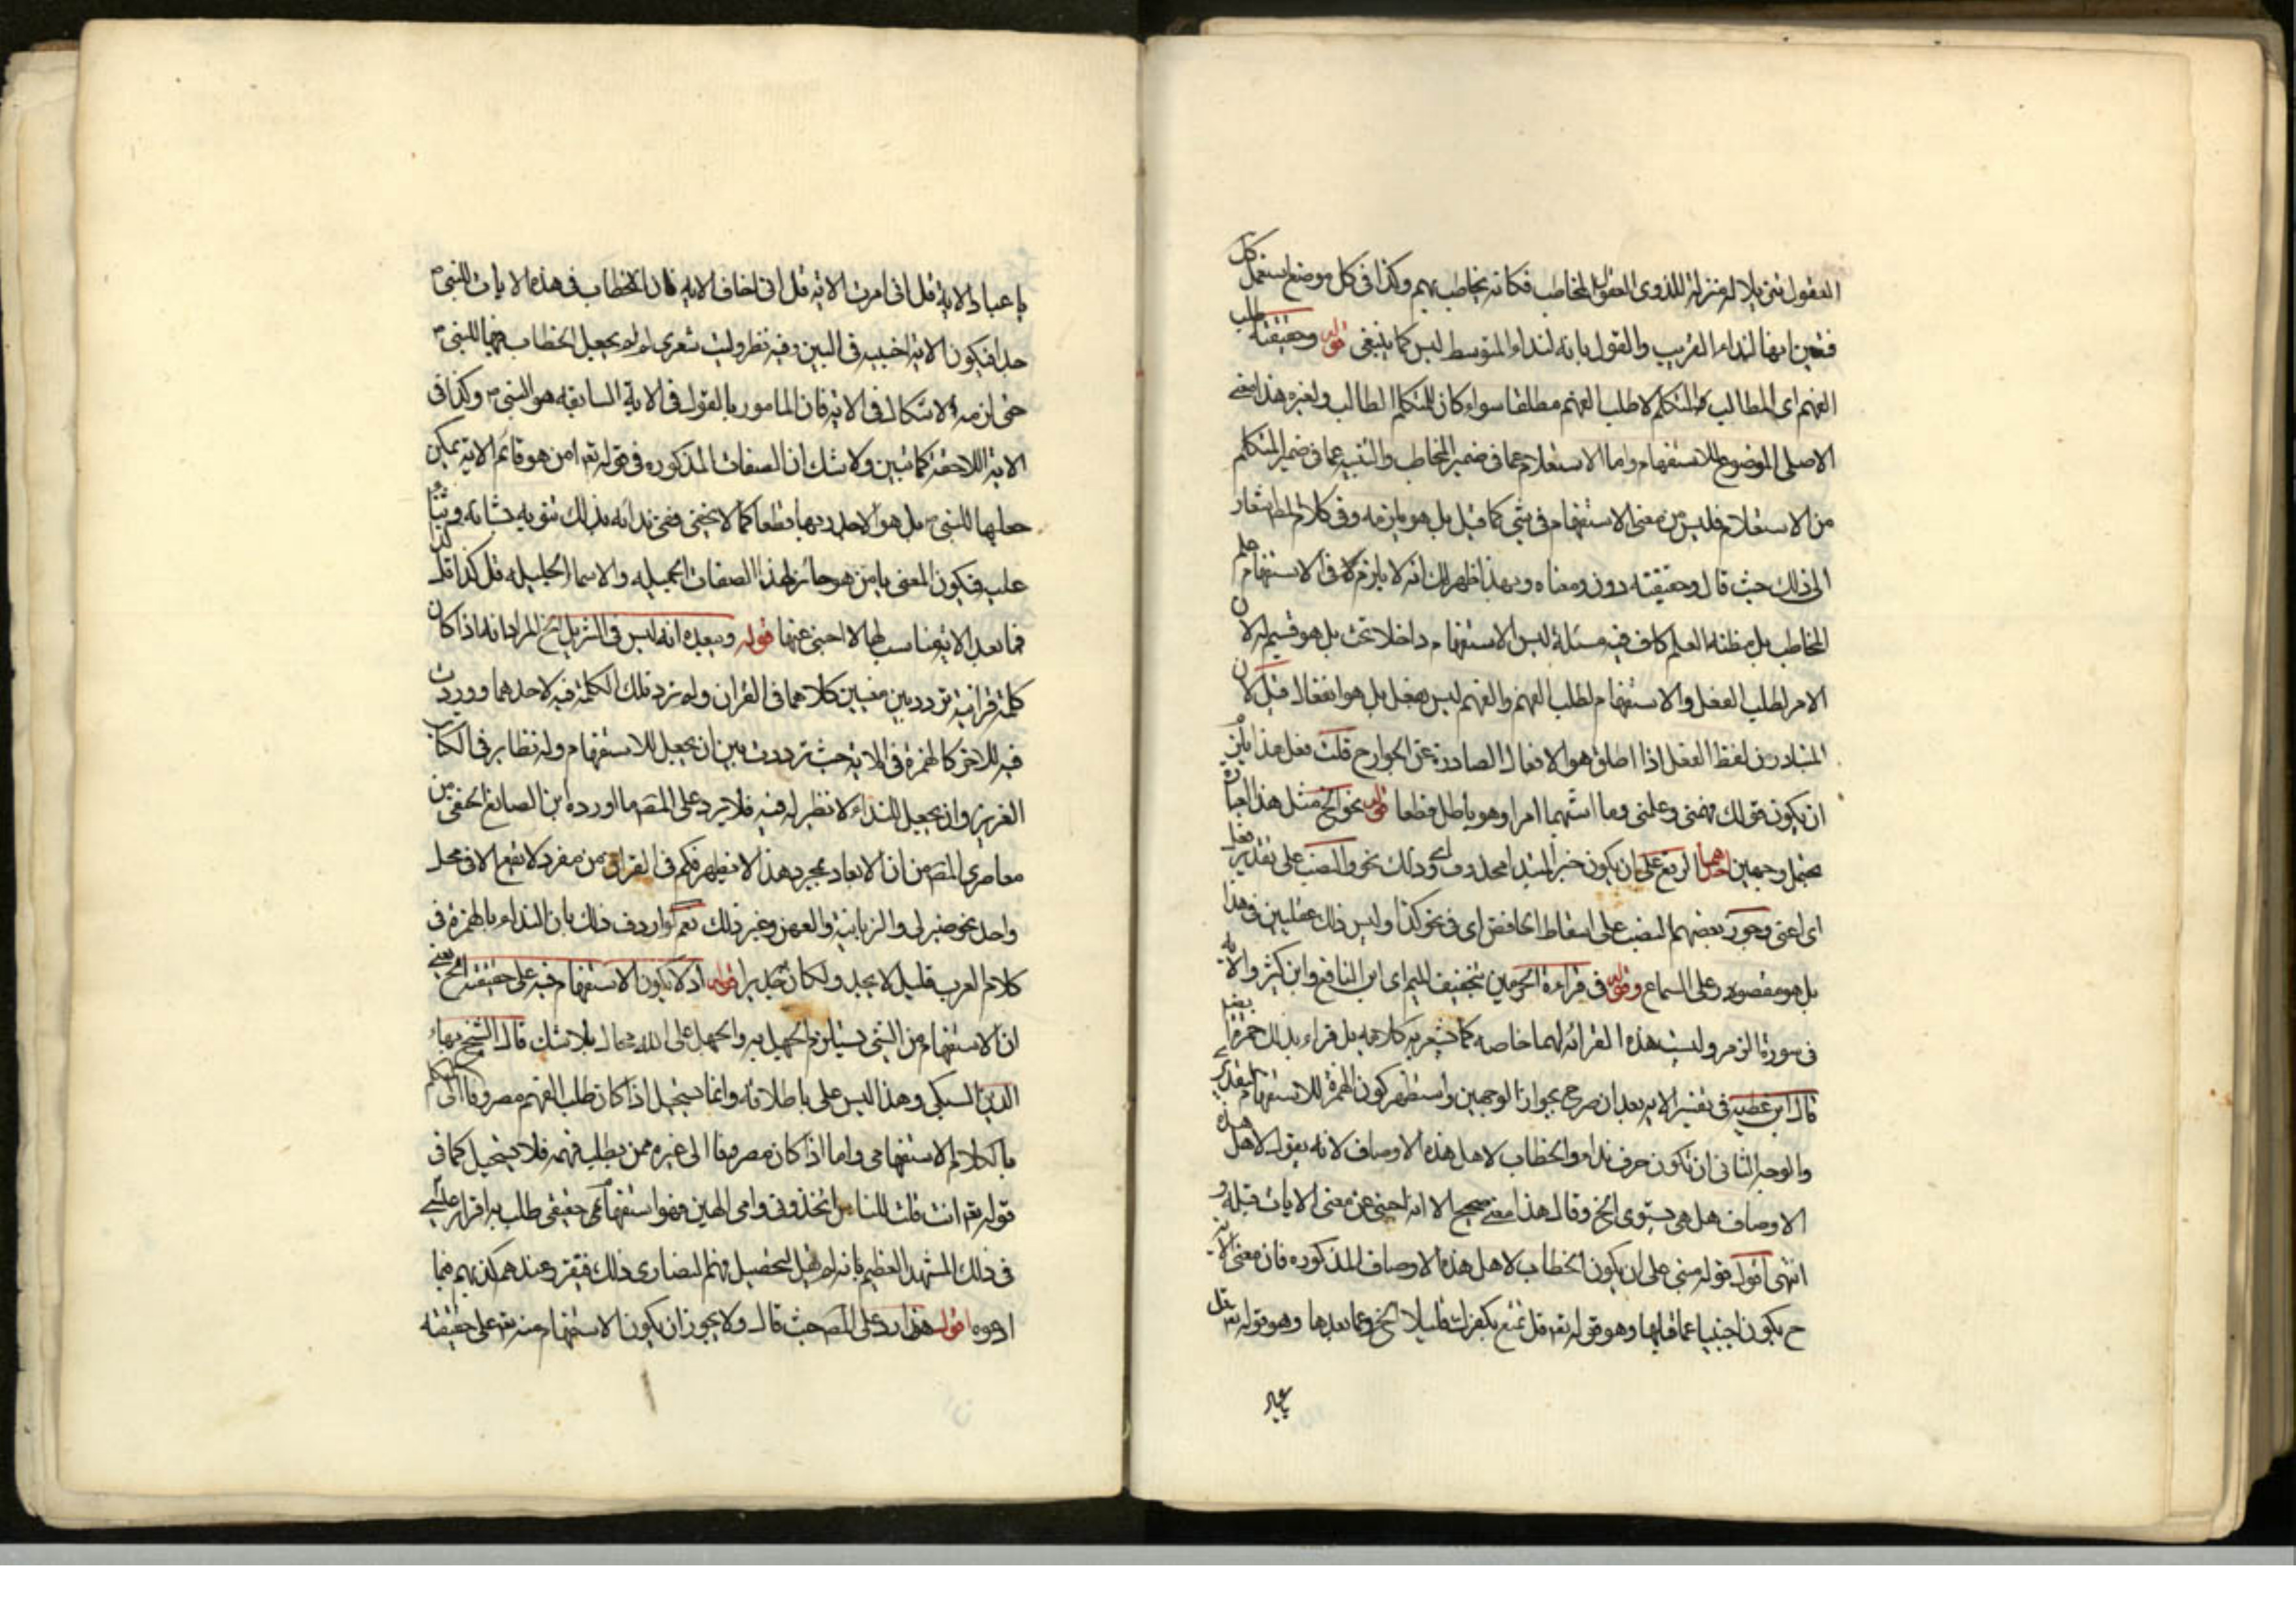 العقول تنزيلا له منزلة للذوى العقول المخاطب فكانه يخاطب بهم وكذا فى كل موضع استعمل كل
فتعين انها لنداء القريب والقول بانه لنداء المتوسط ليس كما ينبغى قوله وحقيقته طلب
الفهم اى المطالب المتكلم لا طلب الفهم مطلقا سواء كان للمتكلم الطالب ولغيره هذا معنى
الاصلى الموضوع للاستفهام واما الاستعلام عما فى ضمير المخاطب والتنبيه عما فى ضمير المتكلم
من الاستعلام فليس من معنى الاستفهام فى شئ كما قيل بل هو يلزمه وفى كلام المص اشعار
الى ذلك حيث قال وحقيقته دون ومعناه وبهذا ظهر لك انه لا يلزم فى الاستفهام علم
المخاطب بل مظنة العلم كاف فيه مسئلة ليس الاستفهام داخلا تحت بل هو قسيم له لان
الامر لطلب الفعل والاستفهام لطلب الفهم والفهم ليس بفعل بل هو انفعال قيل لان
المتبادر من لفظ الفعل اذا اطلق هو الافعال الصادرة عن الجوارح قلت فعل هذا يلزم
ان يكون قولك فهمنى وعلمنى وما اشبهما امرا وهو باطل قطعا قوله نحو الخ مثل هذا العبارة
يحتمل وجهين احدهما الرفع على ان يكون خبر المبتدا محذوف اى وذلك نحو والنصب على تقدير فعل
اى اعنى وجوز بعضهم النصب على اسقاط الخافض اى فى نحو كذا وليس ذلك بقياس فى هذا
بل هو مقصور على السماع وقوله فى قراءة الحرميين بتخفيف الميم اى ابن النافع وابن كثير والاية
فى سورة الزمر وليست هذه القرائه لهما خاصه كما يشعر به كلامه بل قراء بذلك حمزة ايضا
قال ابن عطيه فى تفسير الايه بعد ان صرح بجواز الوجهين واستظهر كون الهمزة للاستفهام
والوجه الثانى ان تكون حرف نداء والخطاب لاهل هذه الاوصاف لانه يقول لاهل هذه
الاوصاف هل هى يستوى الخ وقال هذا معنى صحيح الا انه اجنبى عن معنى الايات قبله و
انتهى اقول قوله مبنى على ان يكون الخطاب لاهل هذه الاوصاف المذكوره فان معنى الاية
ح يكون اجنبيا عما قبلها وهو قوله تعه قل تمتع بكفرك قليلا الخ وعما بعدها وهو قوله تعه قل
يا عباد
يا عباد الاية قل انى امرت الاية قل انى اخاف الايه فان الخطاب فى هذه الايات للنبى
جدا فيكون الاية اجنبيه فى البين وفيه نظر وليت شعرى لم لم يجعل الخطاب فيها للنبى
حتى لزمه الاشكال فى الاية فان المامور بالقول فى الاية السابقه هو النبى وكذا فى
الاية اللاحقة كما تبين ولا شك ان الصفات المذكوره فى قوله تعه امن هو قانت الاية يمكن
جعلها للنبى بل هو الاحدر بها قطعا كما لا يخفى وفى ندائه بذلك تنويه بشانه وثناء
عليه فيكون المعنى يا من هو حائز لهذا الصفات الجميله والاسما الجليله قل كذا قل كذا
فما بعد الاية مناسب لها لا اجنبى عنها قوله ويبعده انه ليس فى التنزيل الخ المراد انه اذا كان
كلمة قرانية تردد بين معنيين كلاهما فى القران ولم ترد تلك الكلمة فيه لاحدهما ووردت
فيه للاخر كالهمزة فى الاية حيث ترددت بين ان يجعل للاستفهام وله نظاير فى الكتاب
العزيز وان يجعل للنداء لا نظير له فيه فلا يرد على المصه ما اورده ابن الصائغ الحنفى من
معاصرى المصه من ان الابعاد بمجرد هذا لا يظهر فكم فى القران من مفرد لا يقع الا فى محل
واحد نحو ضيزى والزبانية والعهن وغير ذلك نعم لو اردف ذلك بان النداء بالهمزة فى
كلام العرب قليل لا يجد ولكان جديرا قوله اذ لا يكون الاستفهام فيه على حقيقته الخ يعنى
ان الاستفهام من الشئ يستلزم الجهل به والجهل على الله محال بلا شك قال الشيخ بهاء
الدين السبكى وهذا ليس على باطلاقه وانما يستحيل اذا كان طلب الفهم مصروفا الى المتكلم
بالكلام الاستفهامى واما اذا كان مصروفا الى غيره ممن يطلب فهمه فلا يستحيل كما فى
قوله تعه انت قلت للناس اتخذونى وامى الهين فهو استفهام حقيقى طلب به اقرار عيسى
فى ذلك المشهد العظيم بانه لم يقل لتحصيل فهم النصارى ذلك فيقرر عندهم كذبهم فيما
ادعوه اقول هذا رد على المصه حيث قال ولا يجوز ان يكون الاستفهام منه تعه على حقيقته